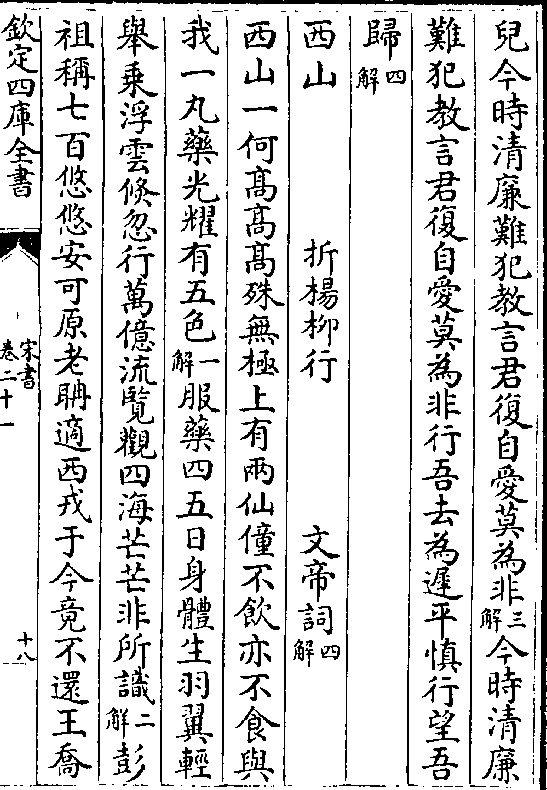 兒今時清廉難犯教言君復自愛莫為非三解今時清廉
難犯教言君復自愛莫為非行吾去為遲平慎行望吾
歸四解
西山 折楊柳行 文帝詞四解
西山一何髙髙髙殊無極上有兩仙僮不飲亦不食與
我一丸藥光耀有五色一解服藥四五日身體生羽翼輕
舉乗浮雲倐忽行萬億流覧觀四海芒芒非所識二解彭
祖稱七百悠悠安可原老聃適西戎于今竟不還王喬
欽定四庫全書
宋書
卷二十一
十八